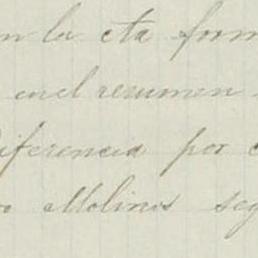 en la cta form
en el resumen
diferencia por
Molinos seg